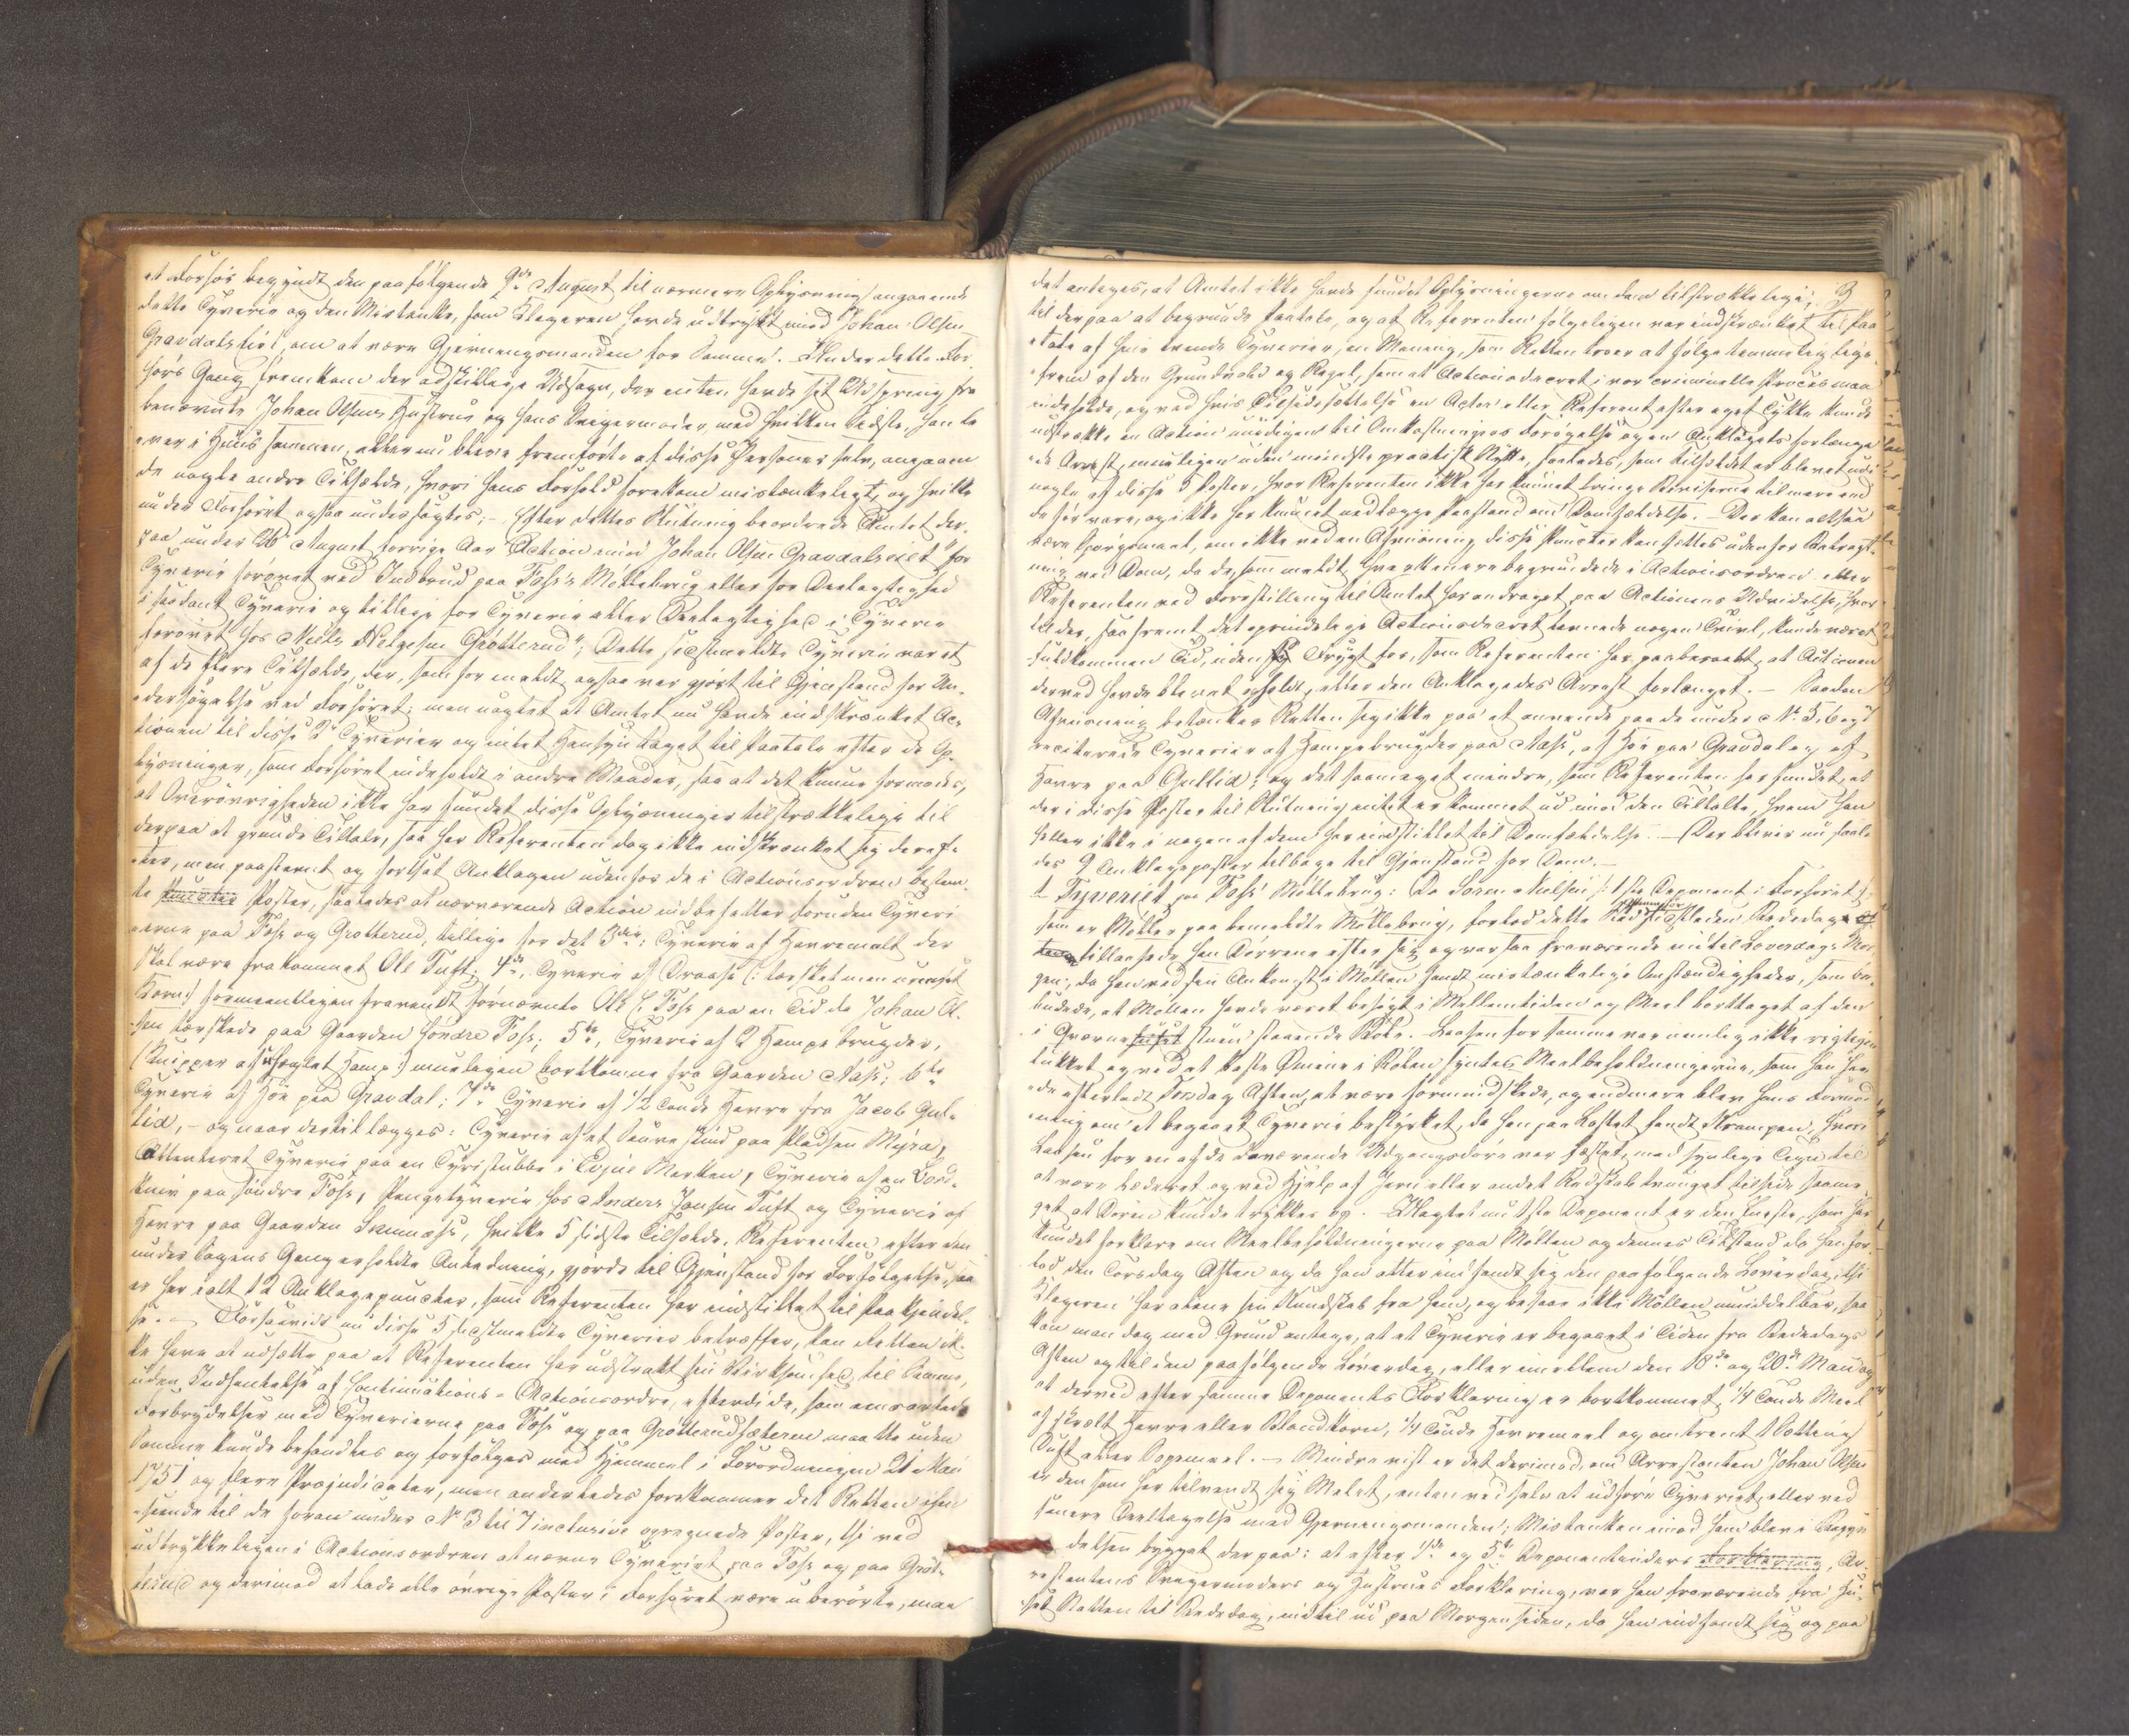 et Forhör begyndt den paafölgende 9de August til nærmere Oplysning angaaende
dette Tyverie og den Mistanke, som Klageren havde udtrykt imod Johan Olsen
Gravdalseiet, om at være Gjerningsmanden for Samme. Under dette For-
hörs Gang fremkom der adskillige Udsagn, der enten havde sit Udspring fra
benævnte Johan Olsens Hustrue og hans Svigermoder, med hvilken Sidste han le-
ver i Huus sammen, eller nu bleve fremförte af disse Personer selv, angaaen
de nogle andre Tilfælde, hvori hans Forhold forekom mistænkeligt, og hvilke
under Forhöret ogsaa undersögtes; - Efter dettes Slutning beordrede Amtet der-
paa under 26 August forrige Aar Action imod Johan Olsen Gravdalseiet "for
Tyverie forövet ved Indbrud paa Foss's Möllebrug eller for Deelagtighed
i saadant Tyverie og tillige for Tyverie eller Deelagtighed i Tyverie
forövet hos Niels Helgesen Grötterud"; Dette sidstmeldte Tyverie var et
af de flere Tilfælde, der, som formeldt, ogsaa var gjort til Gjenstand for Un-
dersögelse ved Forhöret; men uagtet at Amtet nu havde indskrænket Ac-
tionen til disse 2 Tyverier og intet Hensyn taget til Paatale efter de Op-
lysninger, som Forhöret indeholdt i andre Maader, saa at det kunne formodes,
at Overövrigheden ikke har fundet disse Oplysninger tilstrækkelige til
derpaa at grunde Tiltale, saa har Referenten dog ikke indskrænket sig deref-
ter, men paastævnt og fortsat Anklagen udenfor de i Actionsordren bestem-
te Puncter Poster, saaledes at nærværende Action indbefatter foruden Tyveri
erne paa Foss og Grötterud, tillige for det 3die: Tyverie af Havremalt der
skal være frakommet Ole Tuft; 4de, Tyverie af Draase (: tærsket men urenset
Korn:) formeentligen fravendt förnævnte Ole Foss paa en Tid da Johan Ol-
sen tærskede paa Gaarden Söndre Foss; 5te, Tyverie af 2 Hampebrugder,
(Knipper af uheglet Hamp:) mueligen bortkomne fra Gaarden Aass; 6te
Tyverie af Höe paa Gravdal; 7de Tyverie af 1/2 Tönde Havre fra Jacob Gul-
lid, - og naar dertil lægges: Tyverie af et Faareskind paa Pladsen Myra,
Attenteret Tyverie paa en Tyristubbe i Evjue Marken, Tyverie af en Bord-
kniv paa söndre Foss, Pengetyverie hos Anders Jansen Tuft og Tyverie af
Havre paa Gaarden, hvilke 5 sidste Tilfælde, Referenten efter den
under Sagens Gang erholdte Anledning, gjorde til Gjenstand for Forfölgelse, saa
er her ialt 12 Anklagepuncter, som Referenten har indstillet til Paakjendel-
se. - Forsaavidt nu disse 5 sidstmeldte Tyverier betræffer, kan Retten ik-
ke have at udsætte paa at Referenten har udstrakt sin Virksomhed til Samme,
uden Indhentelse af Continuations-Actionsordre, efterdi de, som eensartede
Forbrydelser med Tyverierne paa Foss og paa Grötterudsæteren maatte uden
Samme kunde behandles og forfölges med Hjemmel i Forordningen 21 Mai
1751 og flere Præjudicater, men anderledes forekommer det Retten hen
seende til de foran under No 3 til 7 inclusive opregnede Poster, thi ved
udtrykkeligen i Actionsordren at nævne Tyveriet paa Foss og paa Gröt-
terud og derimod at lade alle övrige Poster i Forhöret være uberörte, maa
3
det antages, at Amtet ikke havde fundet Oplysningerne om dem tilstrækkelige
til derpaa at begrunde Paatale, og at Referenten fölgeligen var indskrænket til Paa
tale af hine tvende Tyverier, en Mening, som Retten troer at fölge temmelig lige
frem af den Grundvold og Regel, som et Actionsdecret i vor criminelle Proces maa
indeholde, og ved hvis Tilsidesættelse en Actor eller Referent efter eget Tykke kunde
udstrække en Action unödigen til Omkostningers Forögelse og en Anklagets forlænge
de Arrest, mueligen uden mindste practisk Nytte, saaledes, som Tilfældet er blevet udi
nogle af disse 5 Poster, hvor Referenten ikke har kunnet bringe Beviserne til mere end
de för vare, og ikke har kunnet nedlægge Paastand om Domfældelse. - Der kan altsaa
være Spörgsmaal, om ikke ved en Afviisning disse Puncter kan sættes udenfor Betragt-
ning ved Dom, da de, som meldt, hverken ere begrundede i Actionsordren eller
Referenten ved Forestilling til Amtet har andraget paa Actionens Udvidelse, hvor-
til der, saafremt det oprindelige Actionsdecret levnede nogen Tvivl, kunde været
fuldkommen Tid, uden Frygt for, som Referenten har paaberaabt, at Actionen
derved havde blevet opholdt, eller den Anklagedes Arrest forlænget. - Saadan
Afviisning betænker Retten sig ikke paa at anvende paa de under No 5, 6 og 7
reciterede Tyverier af Hampebrugder paa Aass, af Höe paa Gravdal og af
Havre paa Gullid; og det saameget mindre, som Referenten har fundet, at
der i disse Poster til Slutning intet er kommet ud imod den Tiltalte, hvem han
heller ikke i nogen af dem har indstillet til Domfældelse. - Der bliver nu saale
des 9 Anklageposter tilbage til Gjenstand for Dom. -
1 Tyveriet paa Foss' Möllebrug: Da Sören Nielsen /: 1ste Deponent i Forhöret :/
som er Möller paa bemeldte Möllebrug, forlod dette Sted Bededags
tillaasede han Dörrene efter sig og var saa fraværende indtil Löverdags Mor
gen; da han ved sin Ankomst i Möllen fandt mistænkelige Omstændigheder, som be-
budede, at Möllen havde været besögt i Mellemtiden og Meel borttaget af den
i Qværnehuset staaende Röle. - Laasen for samme var nemlig ikke rigtigen
lukket og ved at kaste Öinene i Rölen syntes Meelbeholdningerne, som han hav
de efterladt Torsdag Aften, at være formindskede, og endmere blev hans Formod
ning om et begaaet Tyverie bestyrket, da han paa Loftet fandt Krampen, hvori
Laasen for en af de værende Udgangsdöre var fæstet, med synlige Tegn til
at være beskadiget og ved Hjelp af Jern eller andet Redskab tvunget tilside saame-
get at Dören kunde trykkes op. - Uagtet nu 1ste Deponent er den Eneste, som har
kundet forklare om Meelbeholdningerne paa Möllen og dennes Tilstand da han for-
lod den Torsdag Aften og da han atter indfandt sig den paafölgende Löverdag, thi
Klageren har alene sin Kundskab fra ham, og besaae ikke Möllen umiddelbar, saa
kan man dog med Grund antage, at et Tyverie er begaaet i Tiden fra Bededags
Aften og til den paafölgende Löverdag, eller imellem den 18de og 20de Mai og
at derved efter samme Deponents Forklaring er bortkommet 1/4 Tönde Meel
af skrælt Havre eller Blandkorn, 1/4 Tönde Havremeel og omtrent 1 Sætting
Duft eller Sopemeel. - Mindre vist er det derimod, om Arrestanten Johan Olsen
er den som har tilvendt sig Melet, enten ved selv at udföre Tyveriet eller ved
senere Deeltagelse med Gjerningsmanden; Mistanken imod ham blev i Begyn
delsen bygget derpaa: at efter 4de og 5te Deponentinders Forklaring, Ar-
restantens Svigermoders og Hustrues Forklaring, var han fraværende fra Hu-
set Natten til Bededag, indtil ud paa Morgensiden, da han indfandt sig og paa